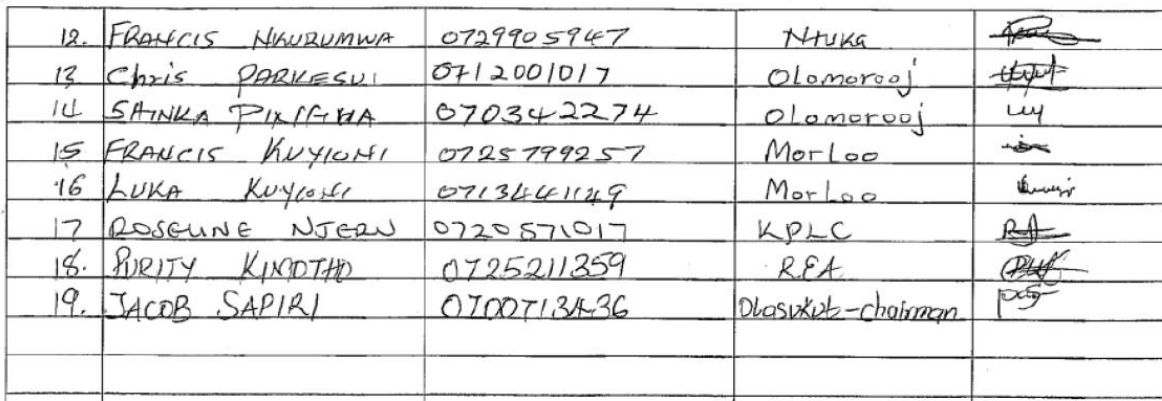 12. FRANCIS NKURUMWA 0729905947 Ntuka
13 Chris PARKESUI 0712001017 Olomorooj
14 SHINKA 0703422274 Olomorooj
15 FRANCIS KUYIONI 0725799257 Morloo
16 LUKA KUYIONI 0713441149 Morloo
17 ROSELINE NJERU 0720571017 KPLC
18. PURITY KINOTHO 0725211359 REA
19. JACOB SAPIRI 0700713436 Olasukut-chairman